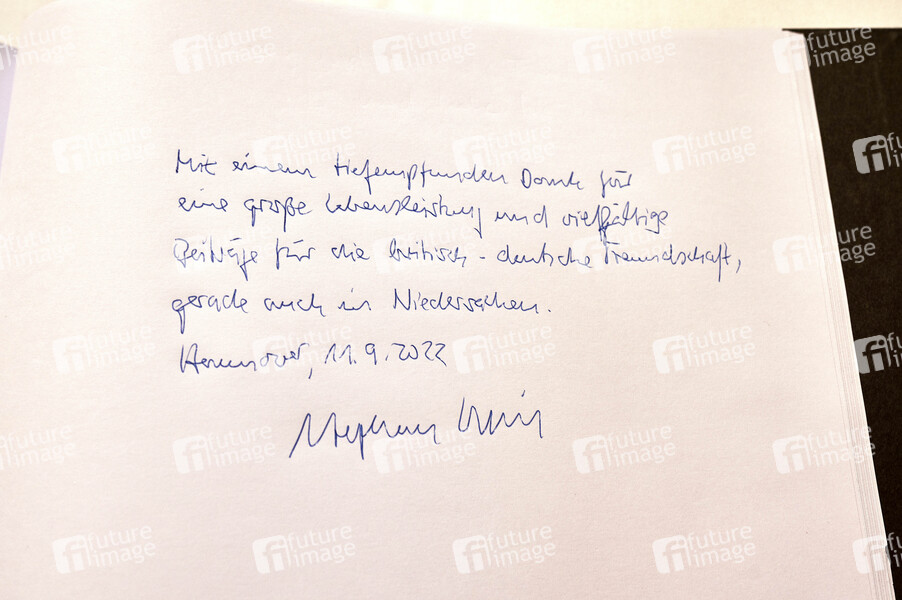 Mit einem tiefempfunden Dank für
eine große Lebensleistung und vielfältige
Beiträge für die britisch-deutsche Freundschaft,
gerade auch in Niedersachsen.
Hannover, 11.9.2022
Stephan Weil
future image